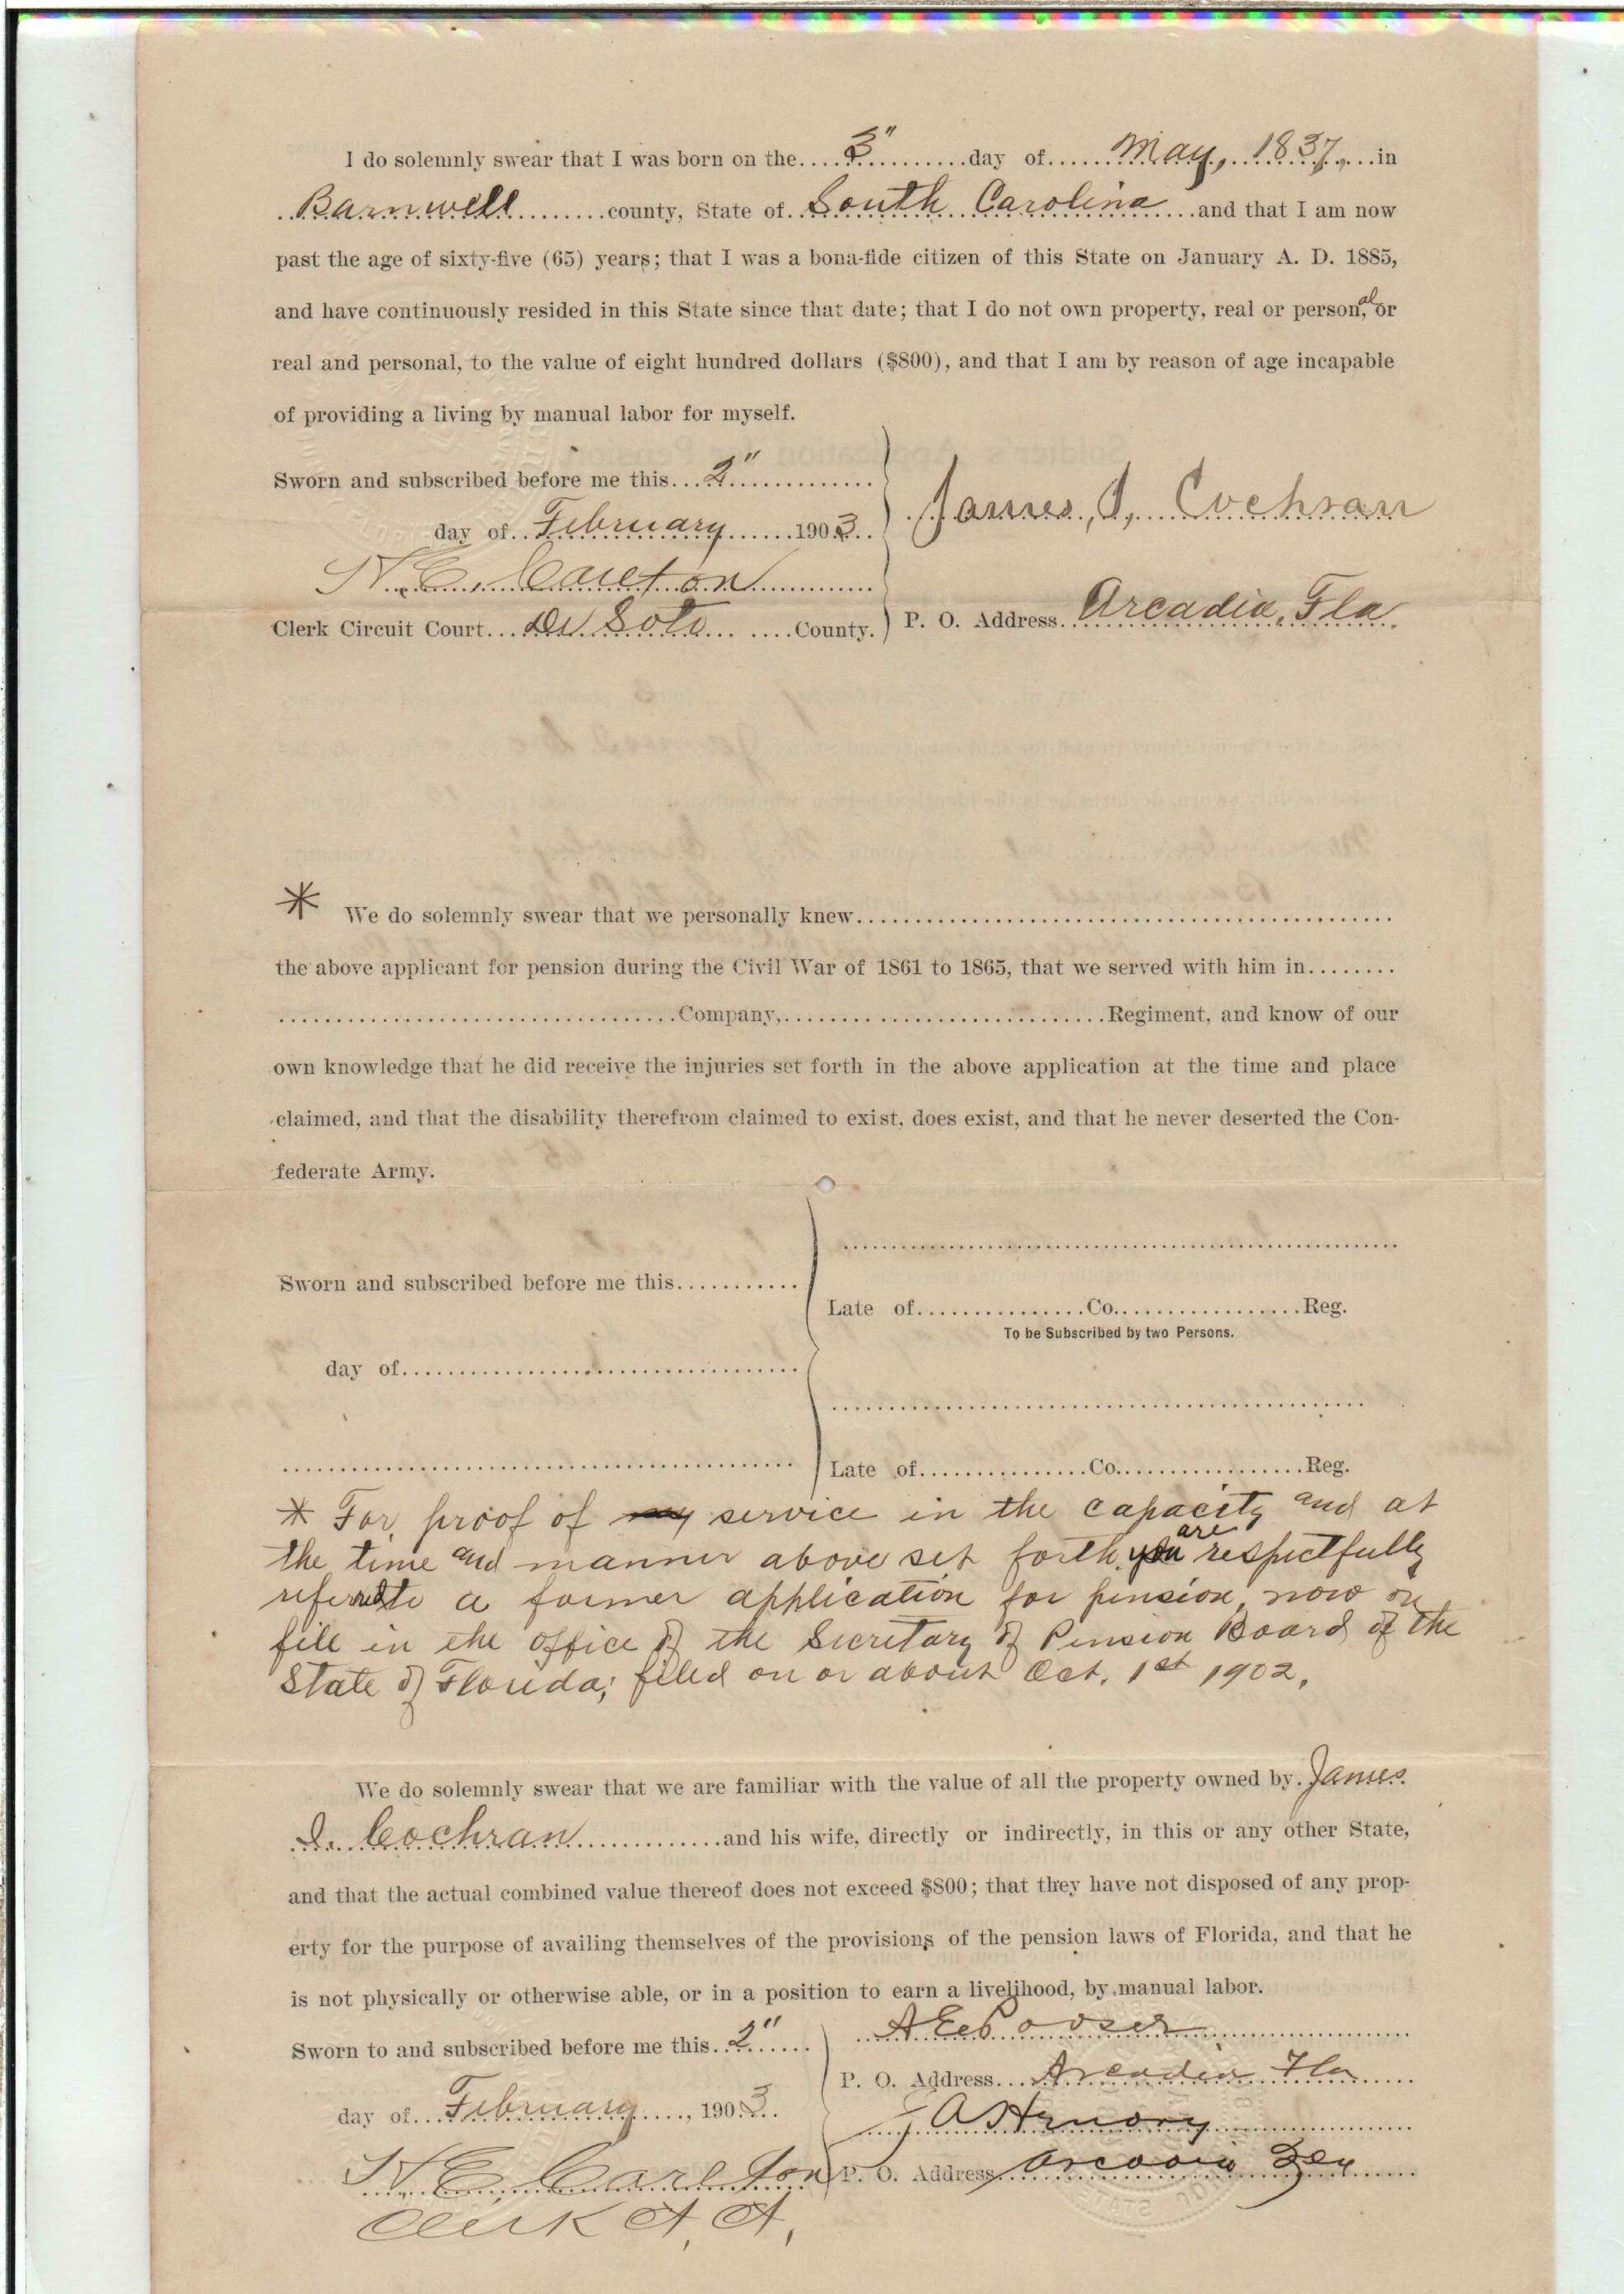 I do solemnly swear that I was born on the....3"..........day of......May, 1837,...in
Barnwell.........county, State of..South Carolina....and that I am now
past the age of sixty-five (65) years; that I was a bona-fide citizen of this State on January A. D. 1885,
and have continuously resided in this State since that date; that I do not own property, real or person,al or
real and personal, to the value of eight hundred dollars ($800), and that I am by reason of age incapable
of providing a living by manual labor for myself.
Sworn and subscribed before me this...2"..............
day of..February.......1903..
James, I, Cochran
N. E. Carlton
Clerk Circuit Court...De Soto........County.
P. O. Address..Arcadia, Fla.
* We do solemnly swear that we personally knew..........................................................
the above applicant for pension during the Civil War of 1861 to 1865, that we served with him in........
....................................Company,..................................Regiment, and know of our
own knowledge that he did receive the injuries set forth in the above application at the time and place
claimed, and that the disability therefrom claimed to exist, does exist, and that he never deserted the Con-
federate Army.
Sworn and subscribed before me this............
Late of................Co..................Reg.
To be Subscribed by two Persons.
day of........................................
Late of................Co..................Reg.
* For proof of my service in the capacity and at
the time and manner above set forth, you are respectfully
referred to a former application for pension, now on
file in the office of the Secretary of Pension Board of the
State of Florida; filed on or about Oct. 1st 1902.
We do solemnly swear that we are familiar with the value of all the property owned by.James
I. Cochran.............and his wife, directly or indirectly, in this or any other State,
and that the actual combined value thereof does not exceed $800; that they have not disposed of any prop-
erty for the purpose of availing themselves of the provisions of the pension laws of Florida, and that he
is not physically or otherwise able, or in a position to earn a livelihood, by manual labor.
Sworn to and subscribed before me this..2"......
P. O. Address...Arcadia Fla
day of...February....., 1903..
N. E. Carlton
P. O. Address Arcadia
Clerk